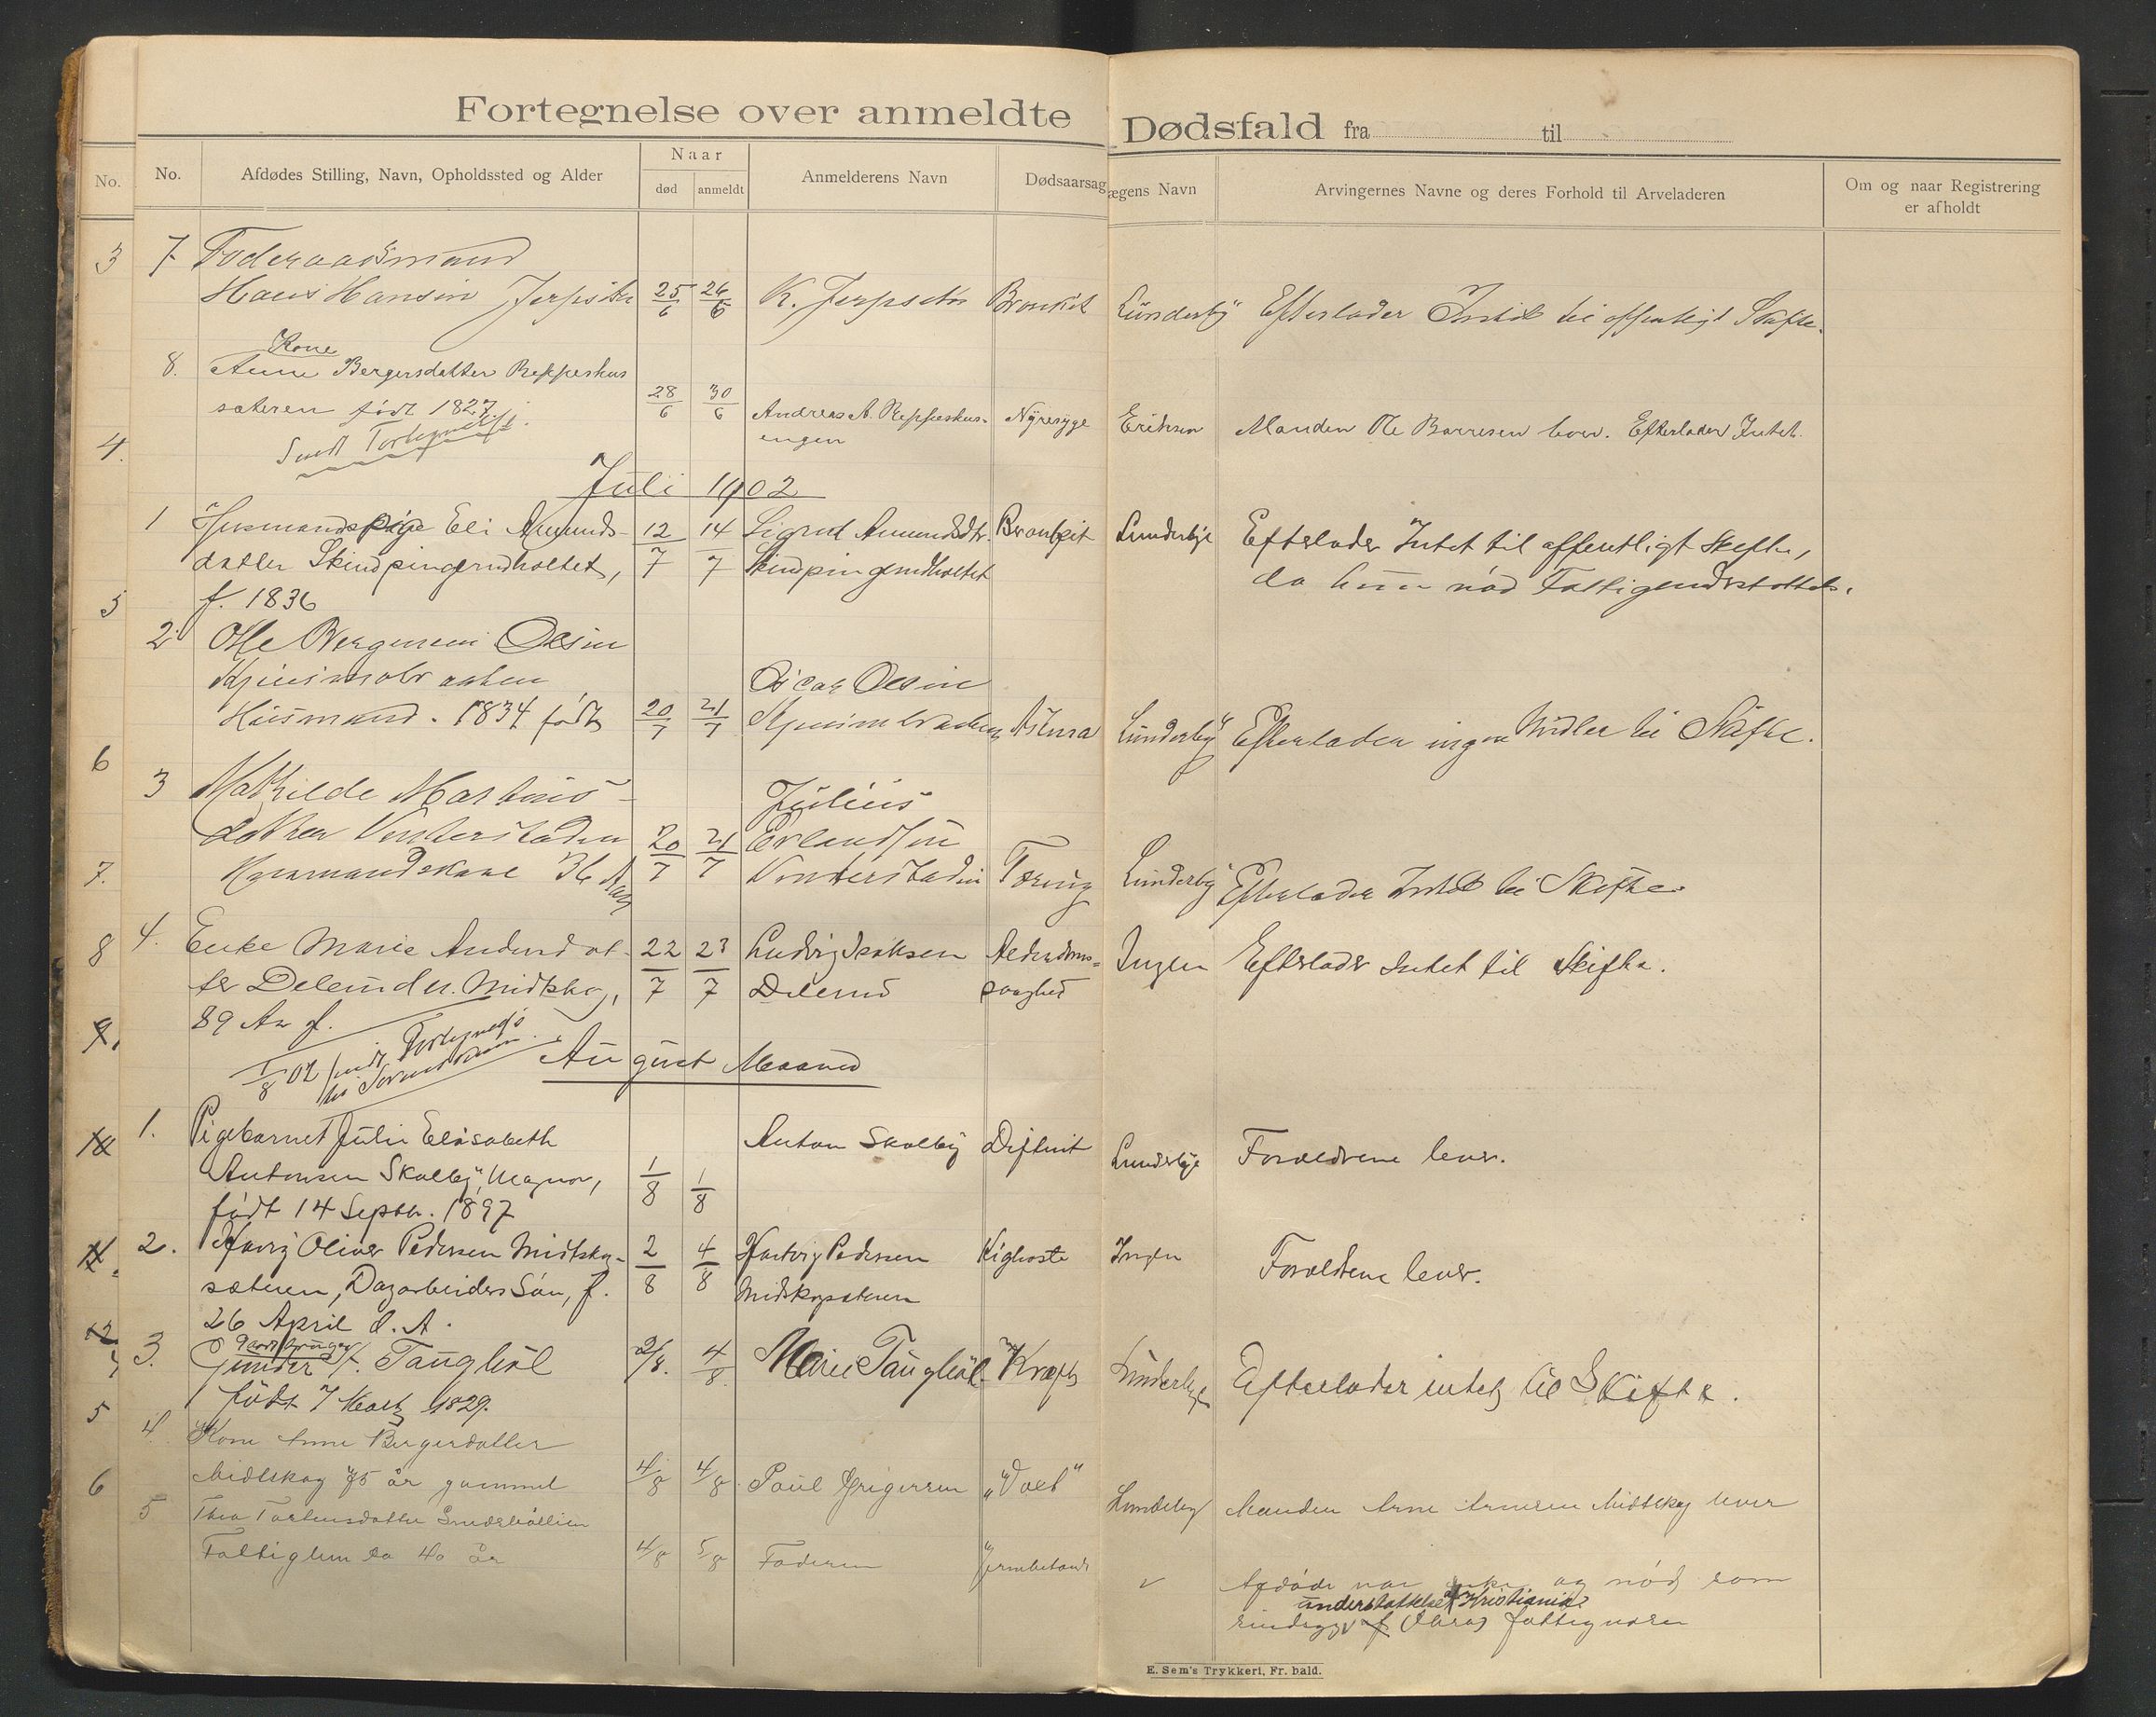 Fortegnelse over anmeldte Dødsfald fra til
No. No. Afdødes Stilling, Navn, Opholdssted og Alder Naar død anmeldt Anmelderens Navn Dødsaarsag ægens Navn Arvingernes Navne og deres Forhold til Arveladeren Om og naar Registrering er afholdt
3 7 Føderaadsmand
Hans Hansen 25/6 26/6 K. Bronkit Lunderby Efterlader Intet til offentligt Skifte.
Kone
8. Anne Bergersdatter Reppeshus
sæteren født 1827. 28/6 30/6 Andreas A. Reppeshus- Nyresyge Eriksen Manden Ole Børresen lever. Efterlader Intet.
engen
4. Sendt
Juli 1902
1 Husmandspige Eli Amunds- 12/7 14/7 Sigrid Amundsdtr. Bronkit Lunderbye Efterlader Intet til offentligt Skifte,
datter Skindpingrudholtet, Skindpingrudholtet da hun nød Fattigunderstøttelse.
5 f. 1836
2 Olsen
Oscar Olsen
Husmand. 1834 født 20/7 21/7 Astma Lunderby Efterlader ingen Midler til Skifte.
6
3 Mathilde Martinus- Julius
datter Vinterstaden 20/7 21/7 Erlandsen
7. Husmandskone 36 Aar Vinterstaden Tæring Lunderby Efterlader Intet til Skifte
8 4. Enke Marie Andersdat- 22/7 23/7 Ludvig Isaksen Alderdoms- Ingen Efterlader Intet til Skifte.
ter Delerud Midtskog, Delerud svaghed
89 Aar
1/8 02
August Maaned
1. Pigebarnet Julie Elisabeth Anton Skolby Difterit Lunderbye Forældrene lever.
Antonsen Skolby, Magnor, 1/8 1/8
født 14 Septbr. 1897
2. Oliver Pedersen Midtskog- 2/8 4/8 Hartvig Pedersen Kighoste Ingen Forældrene lever.
sæteren, Dagarbeiders Søn, f. Midskogsæteren
26 April d. A.
12
3. Gunder Tanghøl 2/8. 4/8 Marie Tanghøl Kræft Lunderbye Efterlader intet til Skifte.
født 7 Marts 1829.
5
4 Kone Anne Bergersdatter
6 Midtskog 75 år gammel 4/8 4/8 Paul Grigersen Lunderby Manden Arne Arnesen Midtskog lever
5 Thea Torstensdatter
Fattiglem ca 40 år 4/8 5/8 Faderen Afdøde var enke og nød som
understøttelse af Kristiania
fattigvæsen
E. Sem's Trykkeri, Fr.hald.